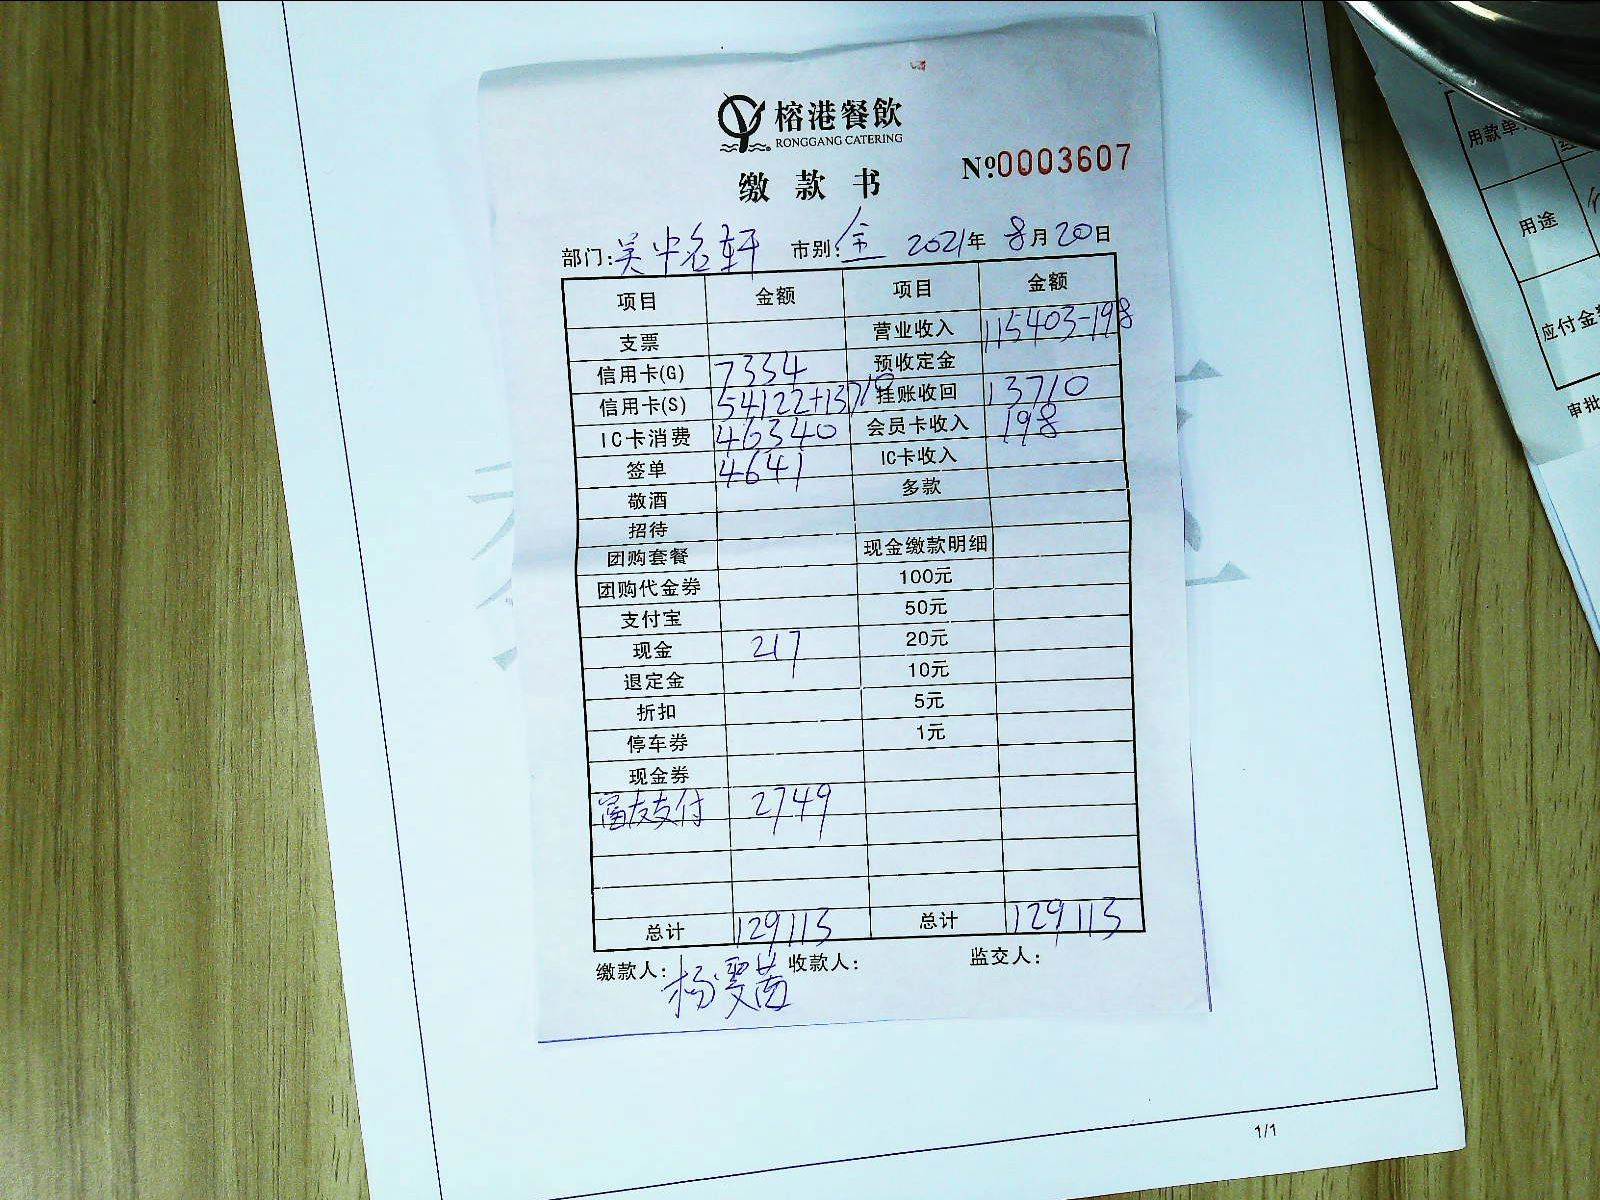 榕港餐飲
RONGGANG CATERING
缴款书
№0003607
部门:吴中名轩 市别:全 2021年8月20日
项目 金额 项目 金额
支票 营业收入 115403-198
信用卡(G) 7334 预收定金
信用卡(S) 54122+13710 挂账收回 13710
IC卡消费 46340 会员卡收入 198
签单 4641 IC卡收入
敬酒 多款
招待
团购套餐 现金缴款明细
团购代金券 100元
支付宝 50元
现金 217 20元
退定金 10元
折扣 5元
停车券 1元
现金券
富友支付 2749
总计 129113 总计 129113
缴款人: 杨雯茜 收款人: 监交人:
用款单
用途
应付金额
审批
1/1